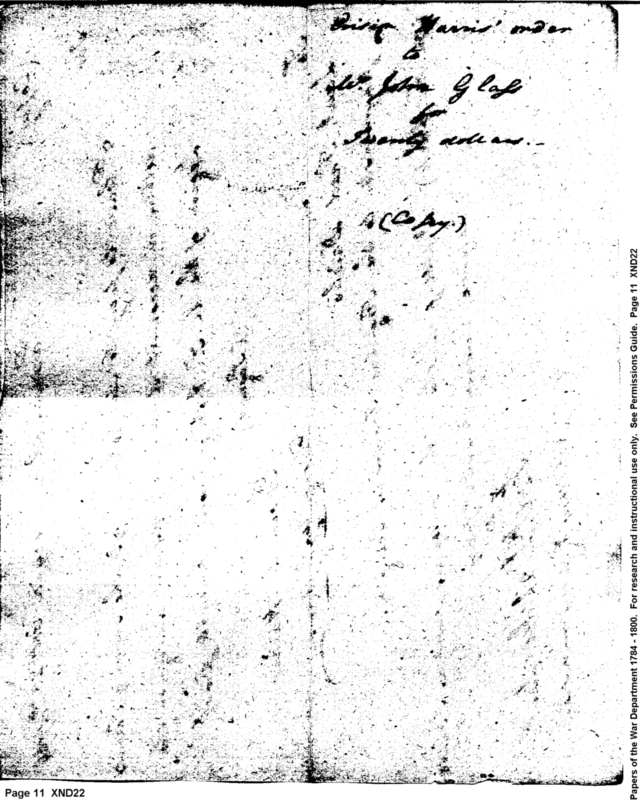 Harris' order
to
Mr. John Glass
for
Twenty dollars.-
(Copy.)
Papers of the War Department 1784 - 1800. For research and instructional use only. See Permissions Guide. Page 11 XND22
Page 11 XND22